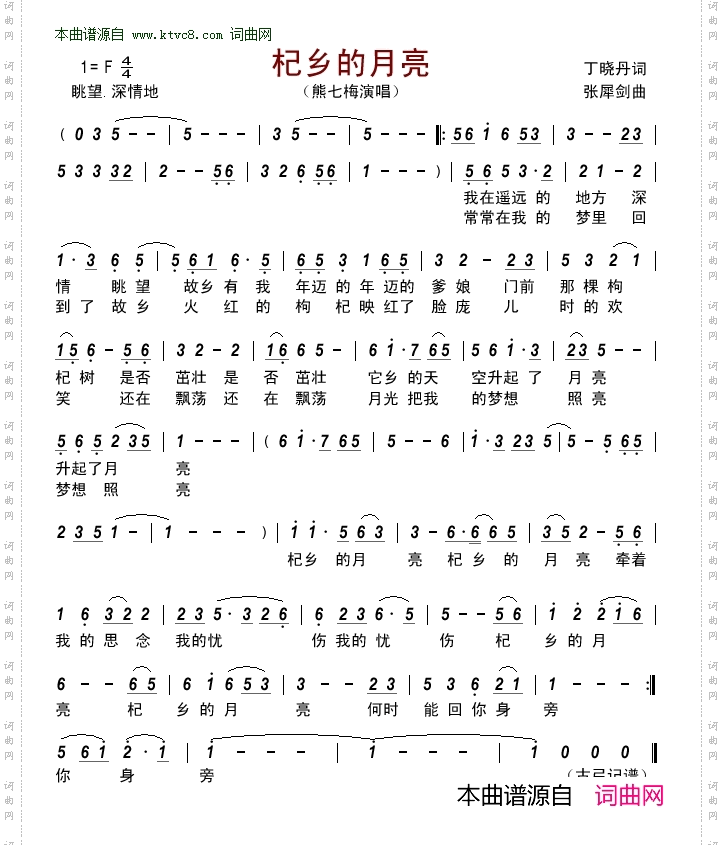 本曲谱源自 www.ktvc8.com 词曲网
杞乡的月亮
1= F 4/4
丁晓丹词
眺望.深情地
（熊七梅演唱）
张犀剑曲
( 0 3 5 - - | 5 - - - | 3 5 - - | 5 - - - ‖: 5 6 i 6 5 3 | 3 - - 2 3 |
5 3 3 3 2 | 2 - - 5 6 | 3 2 6 5 6 | 1 - - - ) | 5 6 5 3 · 2 | 2 1 - 2 |
我在遥远 的 地方 深
常常在我 的 梦里 回
1 · 3 6 5 | 5 6 1 6 · 5 | 6 5 3 1 6 5 | 3 2 - 2 3 | 5 3 2 1 |
情 眺 望 故乡 有 我 年迈 的 年 迈的 爹 娘 门前 那 棵 枸
到 了 故 乡 火 红 的 枸 杞 映 红了 脸 庞 儿 时 的 欢
1 5 6 - 5 6 | 3 2 - 2 | 1 6 6 5 - | 6 i · 7 6 5 | 5 6 i · 3 | 2 3 5 - - |
杞 树 是否 茁壮 是 否 茁壮 它乡 的天 空升 起 了 月 亮
笑 还在 飘荡 还 在 飘荡 月光 把我 的梦想 照 亮
5 6 5 2 3 5 | 1 - - - | ( 6 i · 7 6 5 | 5 - - 6 | i · 3 2 3 5 | 5 - - 6 5 |
升起了月 亮
梦想 照 亮
2 3 5 1 - | 1 - - - ) | i i · 5 6 3 | 3 - 6 · 6 6 5 | 3 5 2 - 5 6 |
杞乡 的月 亮 杞 乡 的 月 亮 牵着
1 6 3 2 2 | 2 3 5 · 3 2 6 | 6 2 3 6 · 5 | 5 - - 5 6 | i 2 2 i 6 |
我 的 思 念 我的忧 伤 我的 忧 伤 杞 乡 的 月
6 - - 6 5 | 6 i 6 5 3 | 3 - 2 3 | 5 3 6 2 1 | 1 - - - :‖
亮 杞 乡 的 月 亮 何时 能 回 你 身 旁
5 6 i 2 · i | i - - - | i - - - | i 0 0 0 ‖
你 身 旁
（古弓记谱）
本曲谱源自 词曲网